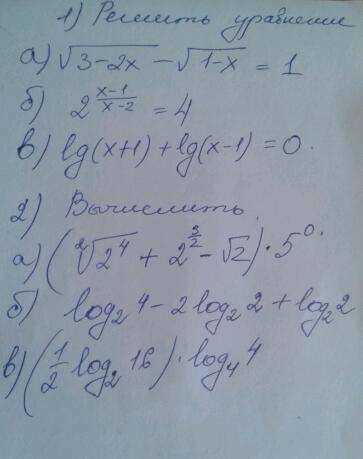 1) Решить уравнение
а) √3-2x - √1-x = 1
б) 2^(x-1)/(x-2) = 4
в) lg(x+1) + lg(x-1) = 0.
2) Вычислить.
а) (²√2⁴ + 2^(3/2) - √2) · 5⁰.
б) log₂4 - 2log₂2 + log₂2
в) (1/2 log₂16) · log₄4